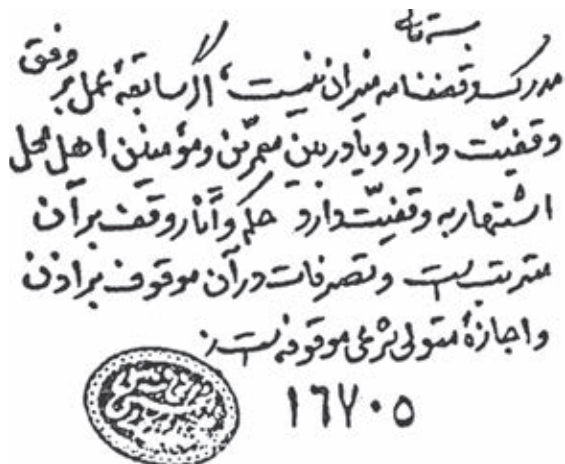 بسمه تعالی
مدرک وقفنامه میزان نیست، اگر سابقهٔ عمل بر وفق
وقفیّت دارد و یا در بین معمرّین و مؤمنین اهل محل
اشتهار به وقفیّت دارد حکم و آثار وقف بر آن
مترتب است و تصرفات در آن موقوف بر اذن
و اجازهٔ متولی شرعی موقوفه است.
۱۶۷۰۵